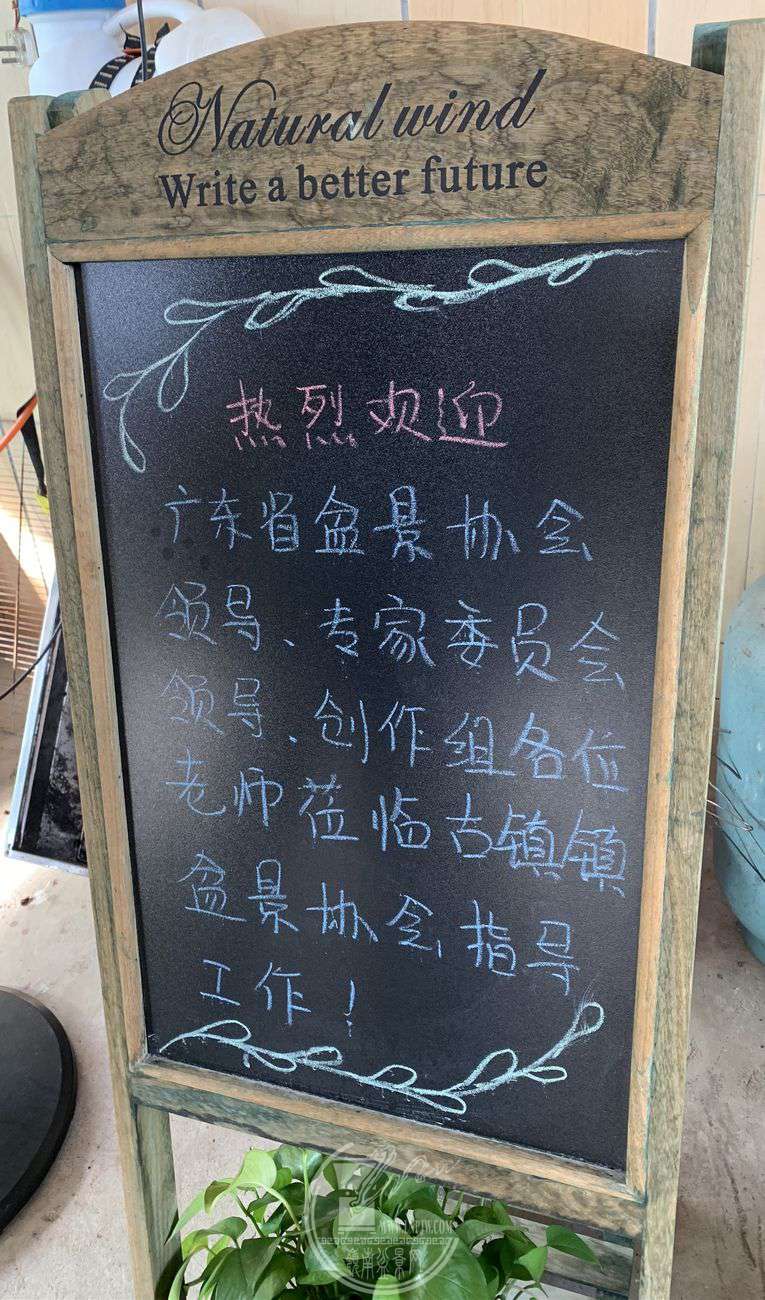 Natural wind
Write a better future
热烈欢迎
广东省盆景协会
领导、专家委员会
领导、创作组各位
老师莅临古镇镇
盆景协会指导
工作！
岭南盆景网